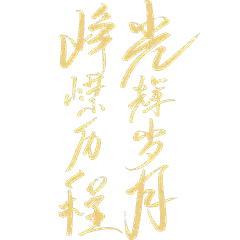 光辉岁月
峥嵘历程